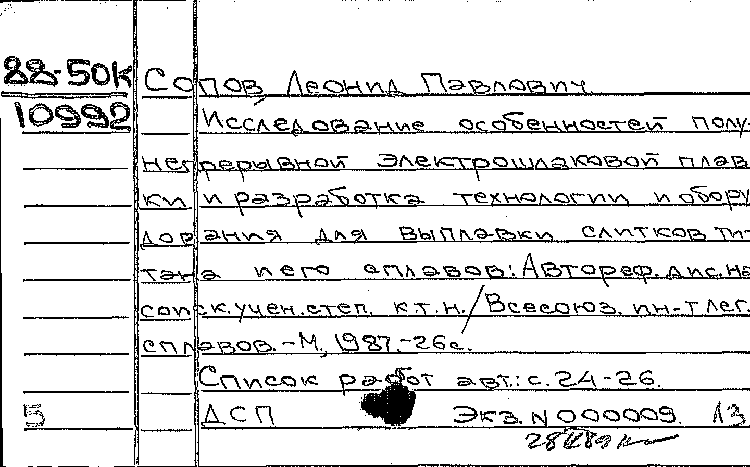 88-50К Сопов Леонид Павлович
10992 Исследование особенностей полу-
непрерывной электрошлаковой плав
ки и разработка технологии и обору
дования для выплавки слитков ти-
тана и его сплавов: Автореф. дис. на
соиск. учен. степ. к.т.н. / Всесоюз. ин-т лег.
сплавов. - М., 1987. - 26с.
Список работ авт.: с. 24-26.
5 ДСП Экз. N 000009. 13